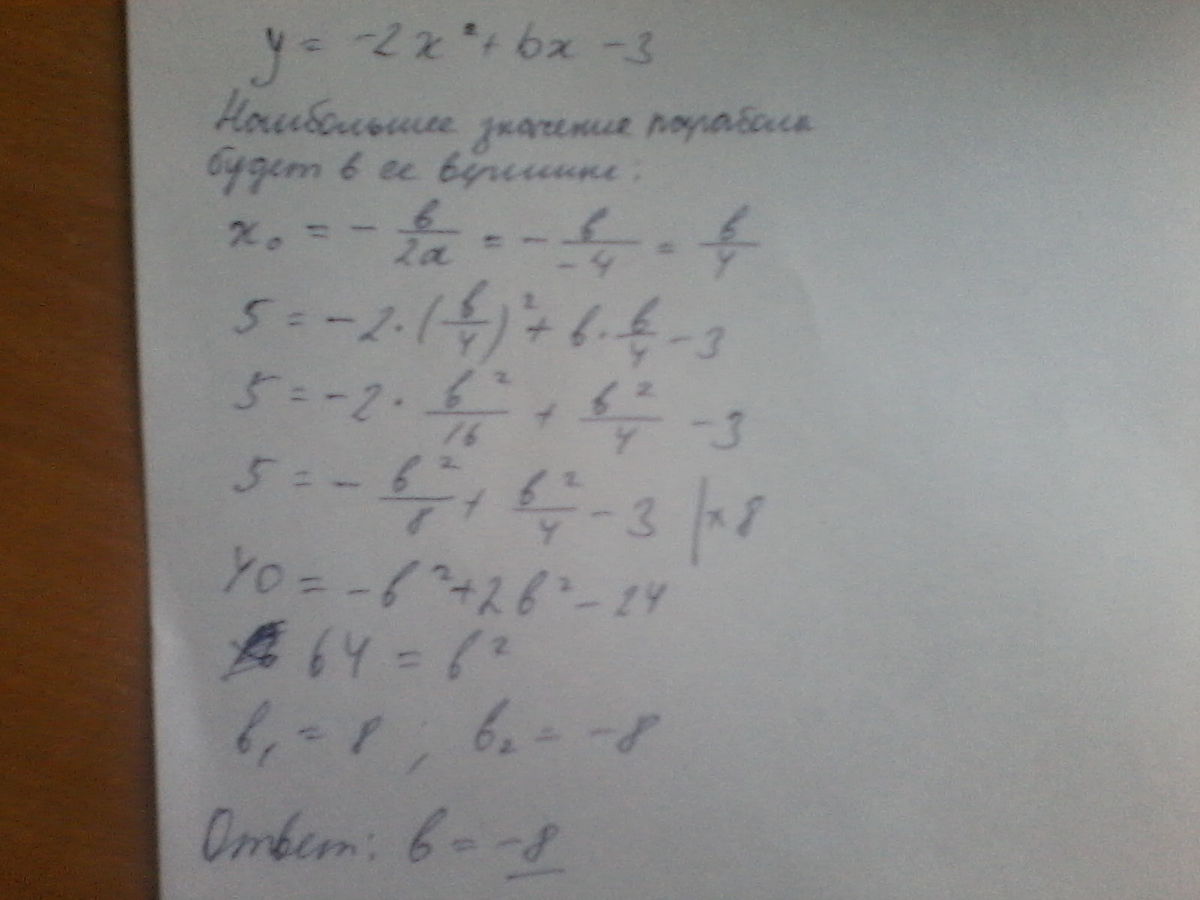 y = -2x² + bx - 3
Наибольшее значение параболы
будет в ее вершине:
x₀ = - в/2a = - в/-4 = в/4
5 = -2·(в/4)² + в·в/4 - 3
5 = -2·в²/16 + в²/4 - 3
5 = - в²/8 + в²/4 - 3 |×8
40 = -в² + 2в² - 24
64 = в²
в₁ = 8 ; в₂ = -8
Ответ: в = -8